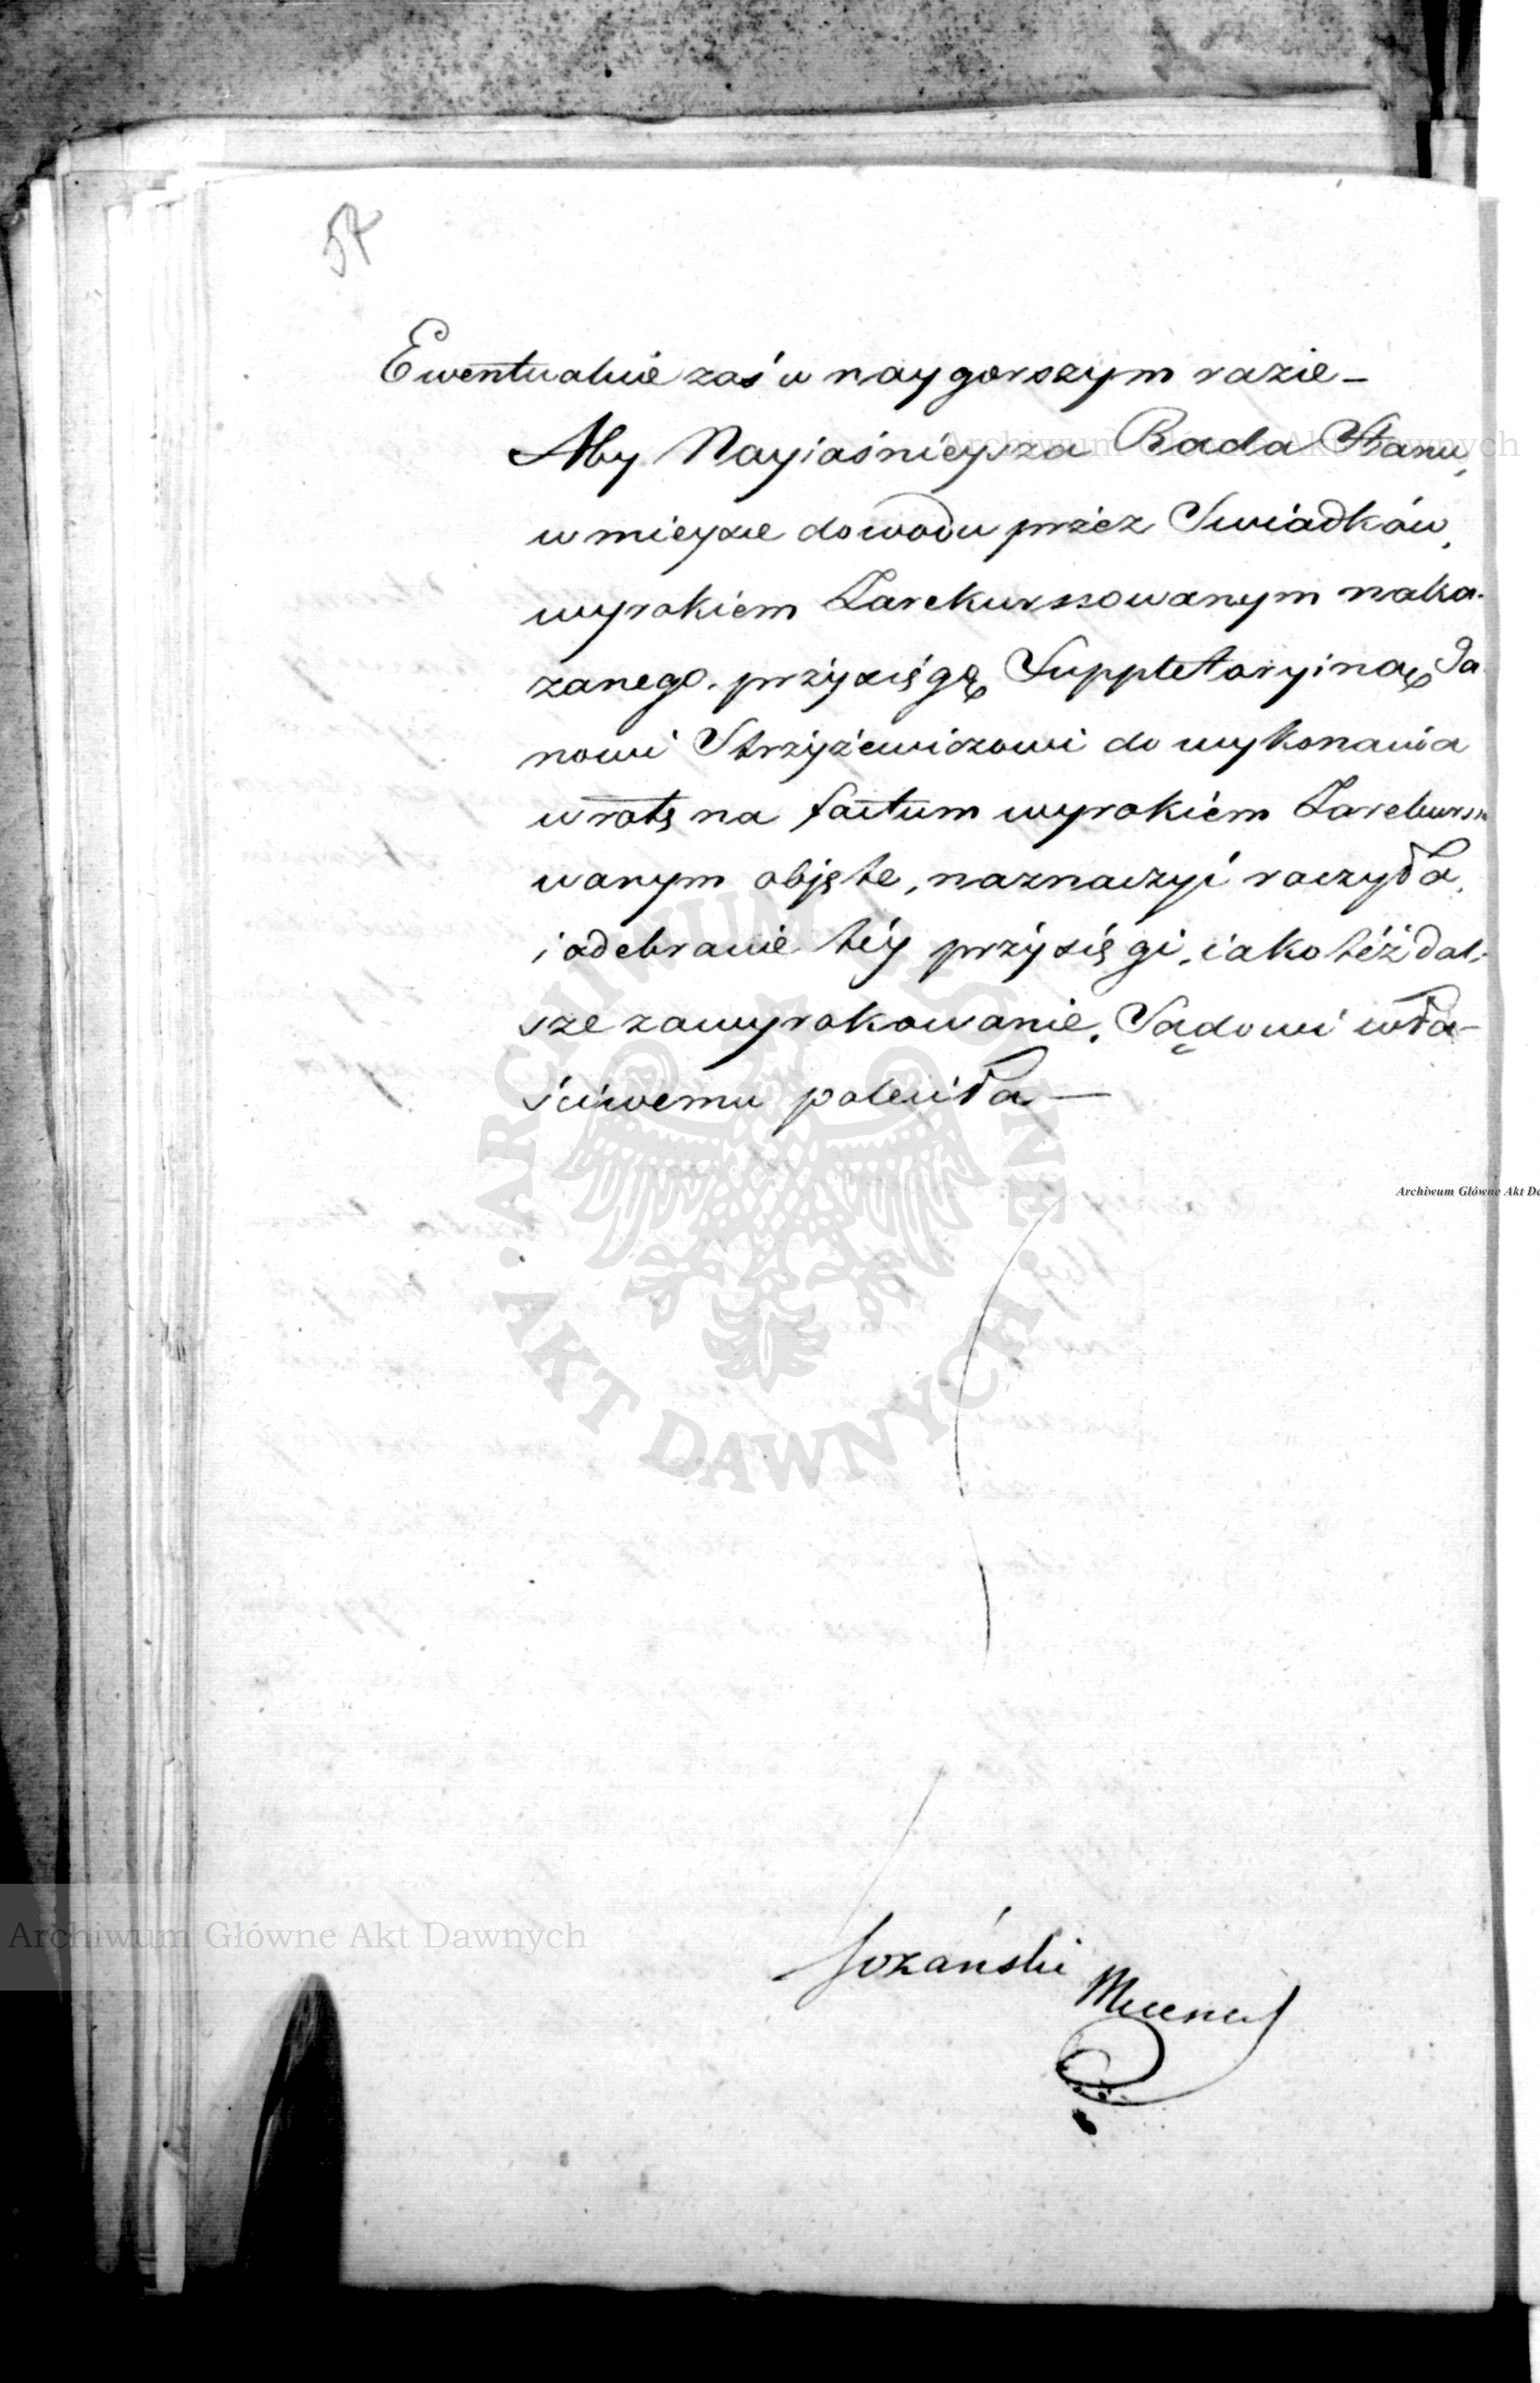 57
Ewentualnie zaś w naygorszym razie –
Aby Nayiaśnieysza Rada Stanu,
w mieysce dowodu przez Swiadków,
wyrokiem Zarekurssowanym naka-
zanego, przysięgę Suppletoryiną Ja-
nowi Strzyżewiczowi do wykonania
w rotę na factum wyrokiem Zarekursso
wanym objęte, naznaczyć raczyła,
i odebranie téy przysięgi, iako też dal-
sze zawyrokowanie, Sądowi wła-
ściwemu poleciła —
Łozański
Mecenas
Archiwum Główne Akt Dawnych
Archiwum Główne Akt Da
ARCHIWUM GŁÓWNE
AKT DAWNYCH
Archiwum Główne Akt Dawnych